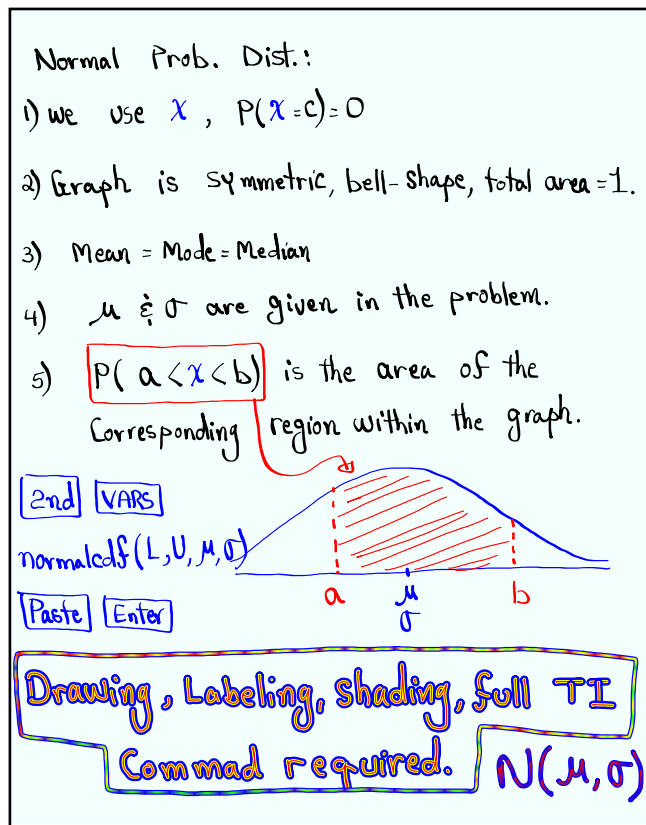 Normal Prob. Dist.:
1) we use x , P(x=c)=0
2) Graph is symmetric, bell-shape, total area=1.
3) Mean = Mode = Median
4) μ & σ are given in the problem.
5) P( a<x<b) is the area of the
Corresponding region within the graph.
2nd VARS
normalcdf(L,U,μ,σ)
a μ b
σ
Paste Enter
Drawing, Labeling, Shading, full TI
Commad required.
N(μ,σ)